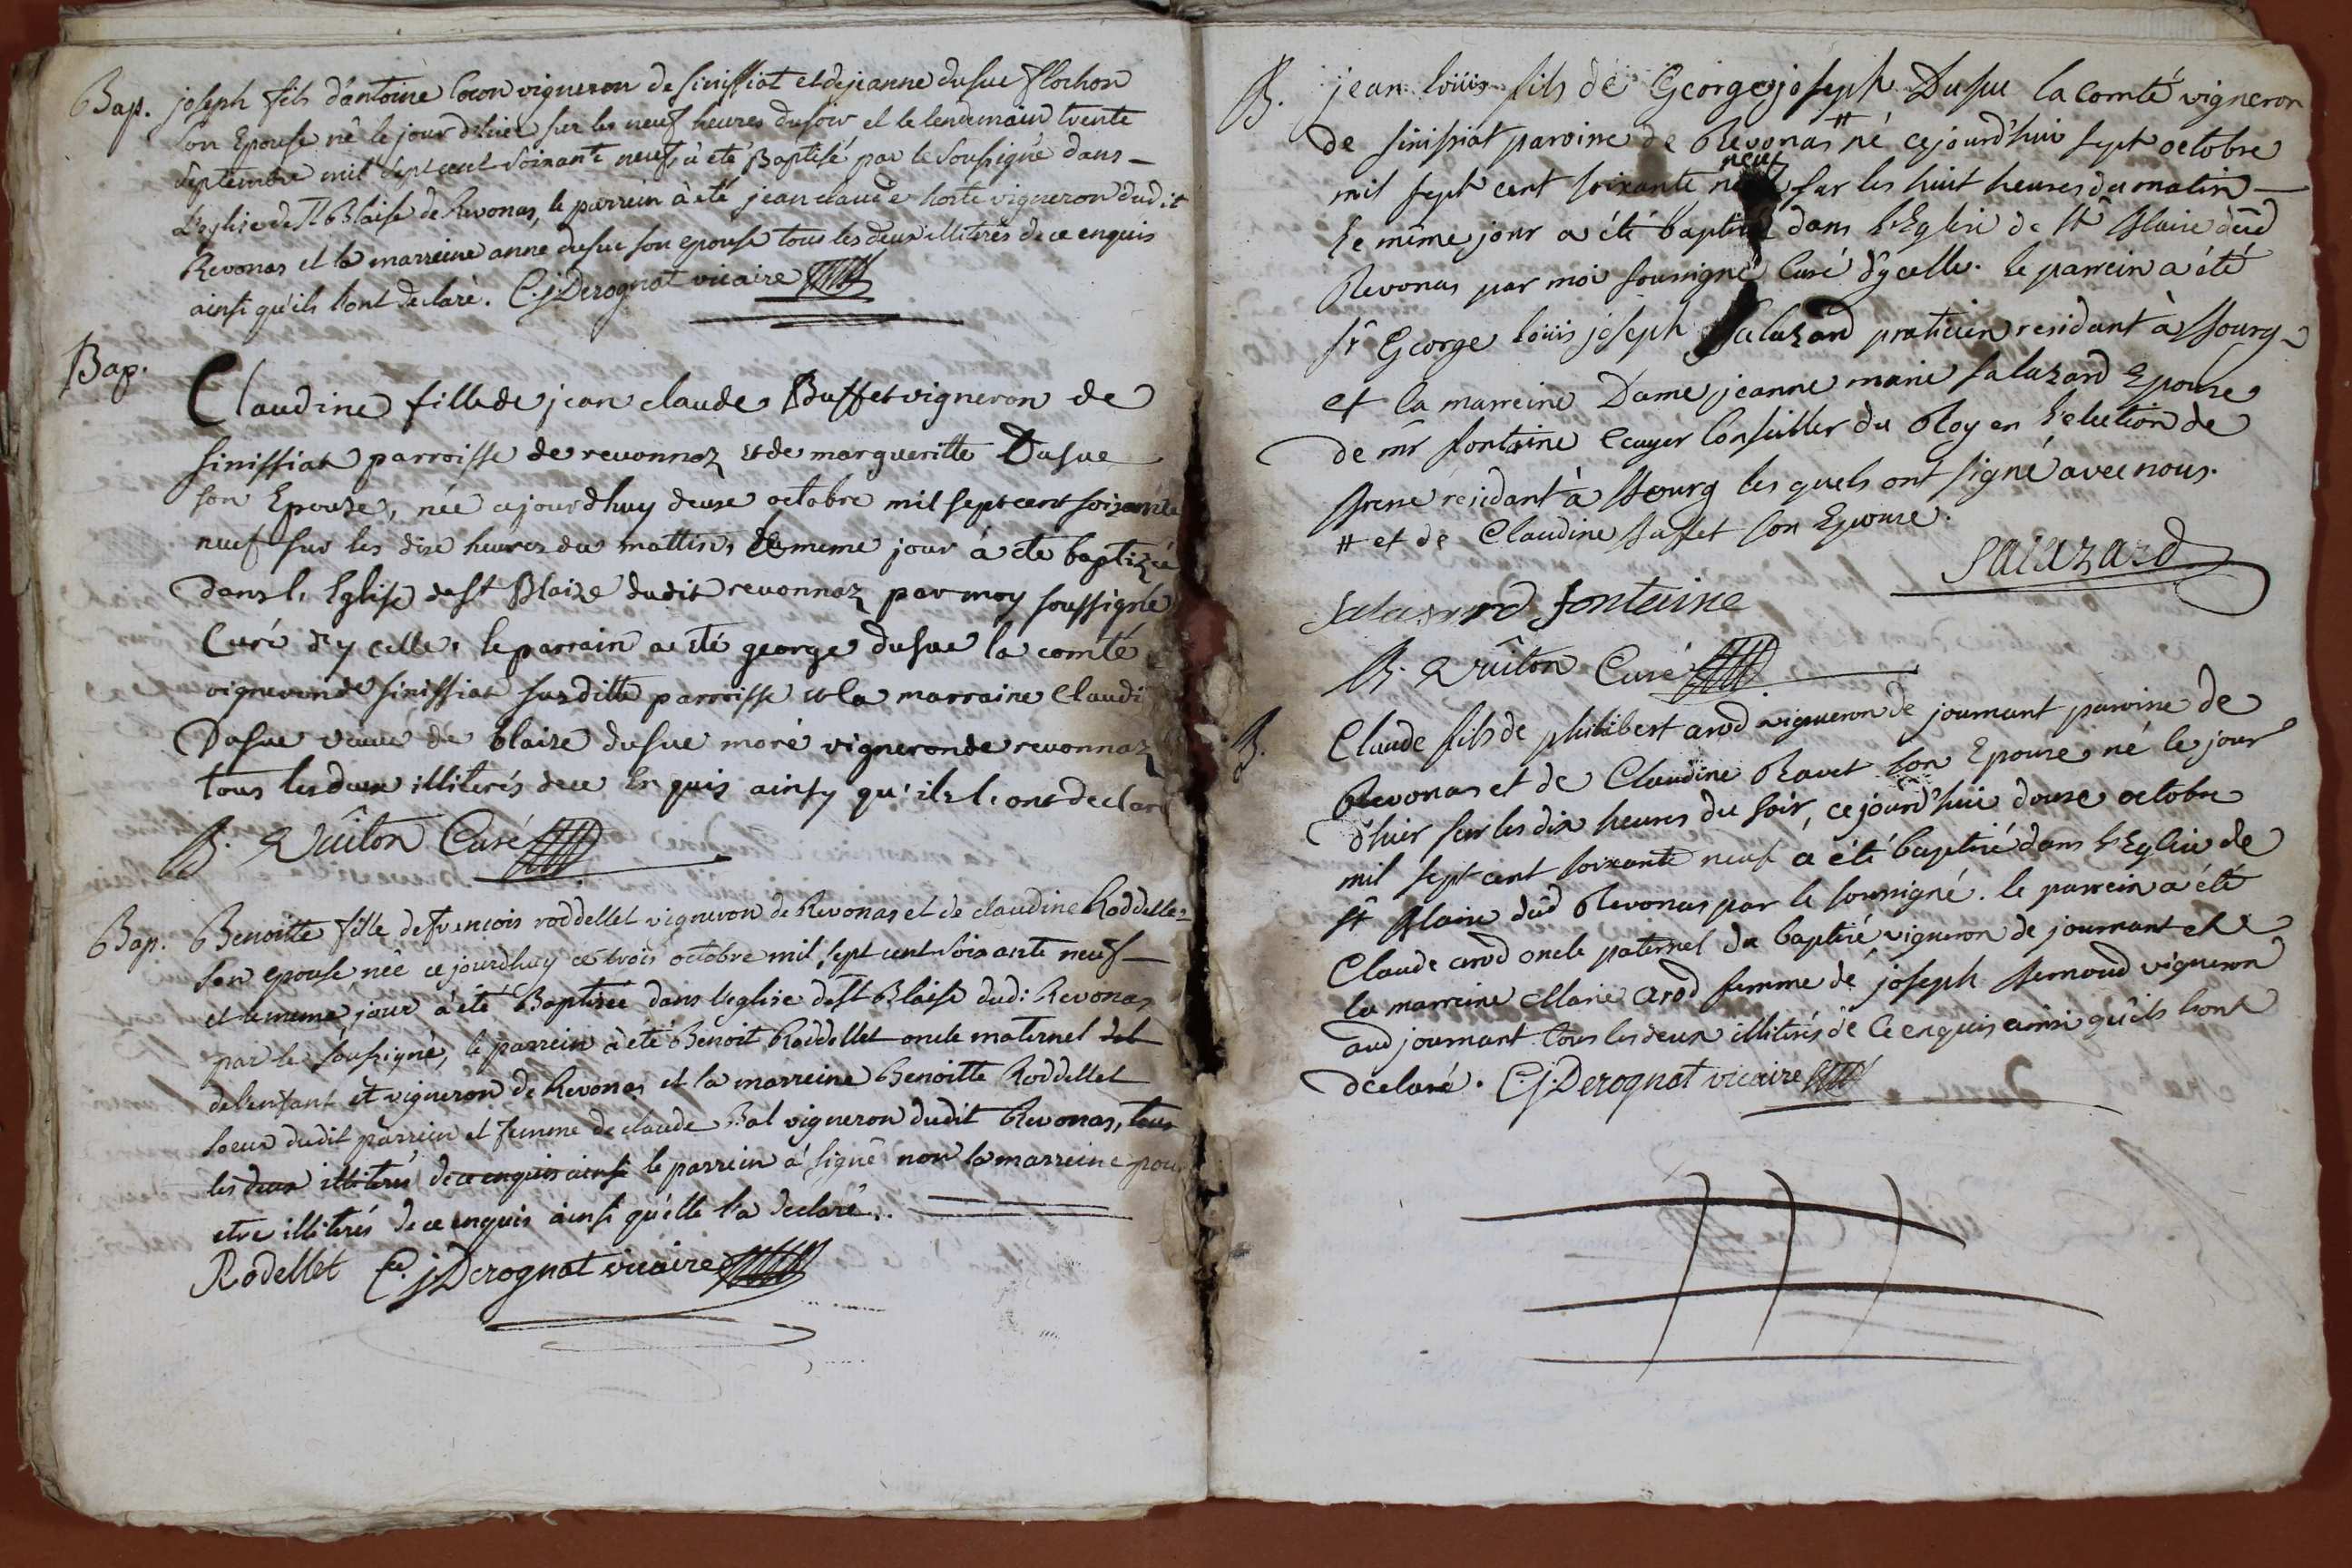 Bap. joseph fils d'antoine locon vigneron de sinissiat et de jeanne dusue flochon
son Epouse né le jour d'hier sur les neuf heures du soir et le lendemain trente
septembre mil sept cent soixante neuf, à été Baptisé par le soussigné dans
L'eglise de St Blaise de Revonas, le parrein à été jean claude horte vigneron dudit
Revonas et la marreine anne dusue son epouse tous les deux illiterés de ce enquis
ainsi qu'ils l'ont declaré. C. j. Derognat vicaire
Bap.
Claudine fille de jean claude Buffet vigneron de
sinissiat parroisse de revonnaz et de margueritte Dusue
son Epouze, née cejourdhuy deuxe octobre mil sept cent soixante
neuf sur les dixe heures du mattin, le meme jour à eté baptizée
dans l'Eglise de St Blaize dudit revonnaz par moy soussigné
Curé d'ycelle. le parrain a été george dusue la comté
vigneron de sinissiat susditte parroisse et la marraine Claudi
Dusue veuve de blaize dusue moré vigneron de revonnaz
tous les deux illiterés de ce Enquis ainsy qu'ils l'ont declaré
B. Vuiton Curé
Bap. Benoitte fille de françois roddellet vigneron de Revonas et de claudine Roddellet
son epouse née ce jourdhuy ce trois octobre mil sept cent soixante neuf
et le meme jour à été Baptisée dans l'eglise de St Blaise dudi: Revonas
par le soussigné, le parrein à eté Benoit Roddellet oncle maternel del
de l'enfant et vigneron de Revonas et la marreine Benoitte Roddellet
soeur dudit parrein et femme de claude Bal vigneron dudit Revonas, tous
les deux illiterés de ce enquis ainsi le parrein à signé non la marreine pour
etre illiterés de ce enquis ainsi qu'elle l'a declaré.
Rodellet C. j. Derognat vicaire
B. jean loüis fils de George joseph Dusue la Comté vigneron
de sinissiat paroisse de Revonas # né cejourd'hui sept octobre
mil sept cent soixante neuf sur les huit heures du matin
Le même jour a été baptisé dans l'Eglise de St Blaise dud
Revonas par moi soussigné Curé d'ycelle. Le parrein a été
Sr George loüis joseph Salazard praticien residant à Bourg
et la marreine Dame jeanne marie Salazard Epouse
de mr fontaine Ecuyer Conseiller du Roy en l'election de
Bresse residant à Bourg les quels ont signé avec nous.
# et de Claudine Buffet son Epouse.
Salazard
Salazard fontaine
B. Vuiton Curé
B. Claude fils de philibert arod vigneron de journant paroisse de
Revonas et de Claudine Ravet son Epouse, né le jour
d'hier sur les dix heures du soir, cejourd'hui douze octobre
mil sept cent soixante neuf a été baptisé dans l'Eglise de
St Blaise dud Revonas par le soussigné. le parrein a été
Claude arod oncle paternel du baptisé vigneron de journant et
la marreine Marie arod femme de joseph Bernoud vigneron
aud journant tous les deux illiterés de ce enquis ainsi qu'ils l'ont
declaré. C. j. Derognat vicaire